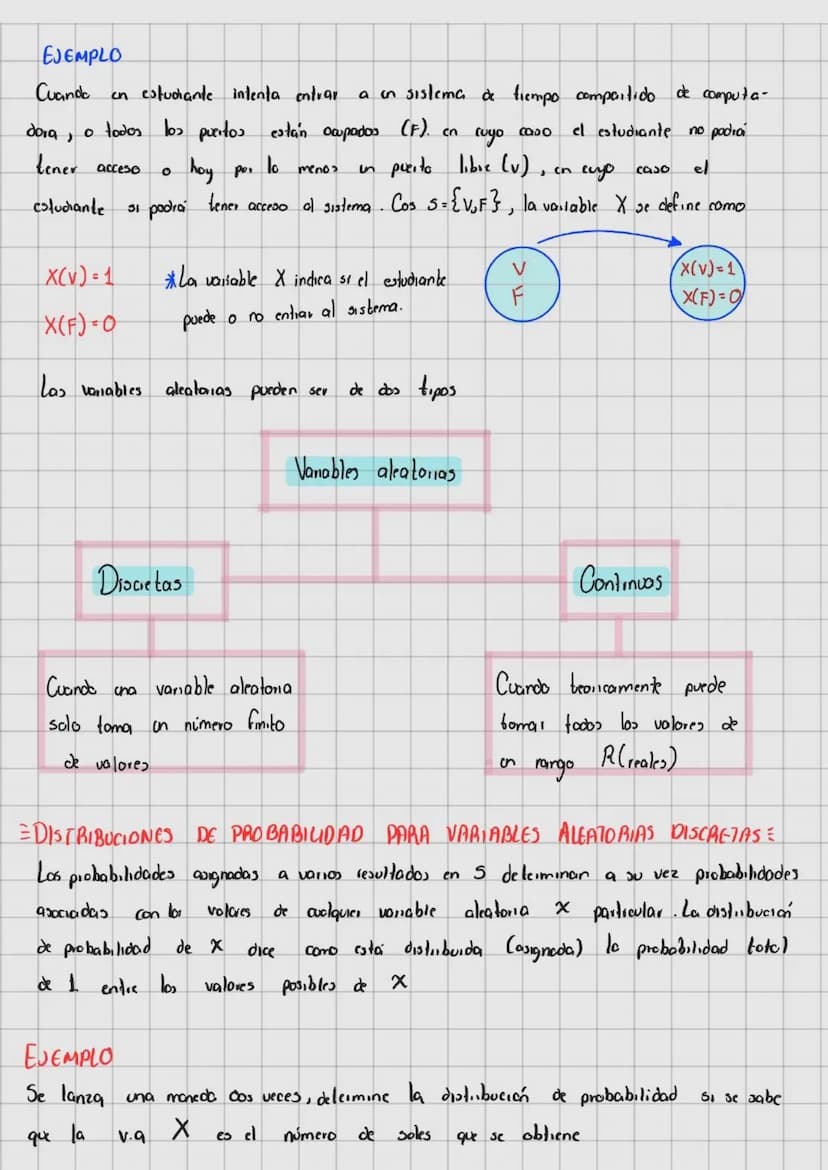 EJEMPLO
Cuando un estudiante intenta entrar a un sistema de tiempo compartido de computa-
dora, o todos los puertos están ocupados (F). en cuyo caso el estudiante no podrá
tener acceso o hay por lo menos un puerto libre (V), en cuyo caso el
estudiante si podrá tener acceso al sistema. Cos S={V,F}, la variable X se define como
X(V)=1
*La variable X indica si el estudiante
X(F)=0
puede o no entrar al sistema.
V
F
X(V)=1
X(F)=0
Las variables aleatorias pueden ser de dos tipos
Variables aleatorias
Discretas
Continuas
Cuando una variable aleatoria
solo toma un número finito
de valores
Cuando teoricamente puede
tomar todos los valores de
un rango R(reales)
DISTRIBUCIONES DE PROBABILIDAD PARA VARIABLES ALEATORIAS DISCRETAS
Las probabilidades asignadas a varios resultados en S determinan a su vez probabilidades
asociadas con los valores de cualquier variable aleatoria X particular. La distribución
de probabilidad de X dice como está distribuida (asignada) la probabilidad total
de 1 entre los valores posibles de X
EJEMPLO
Se lanza una moneda dos veces, determine la distribución de probabilidad si se sabe
que la v.a X es el número de soles que se obtiene